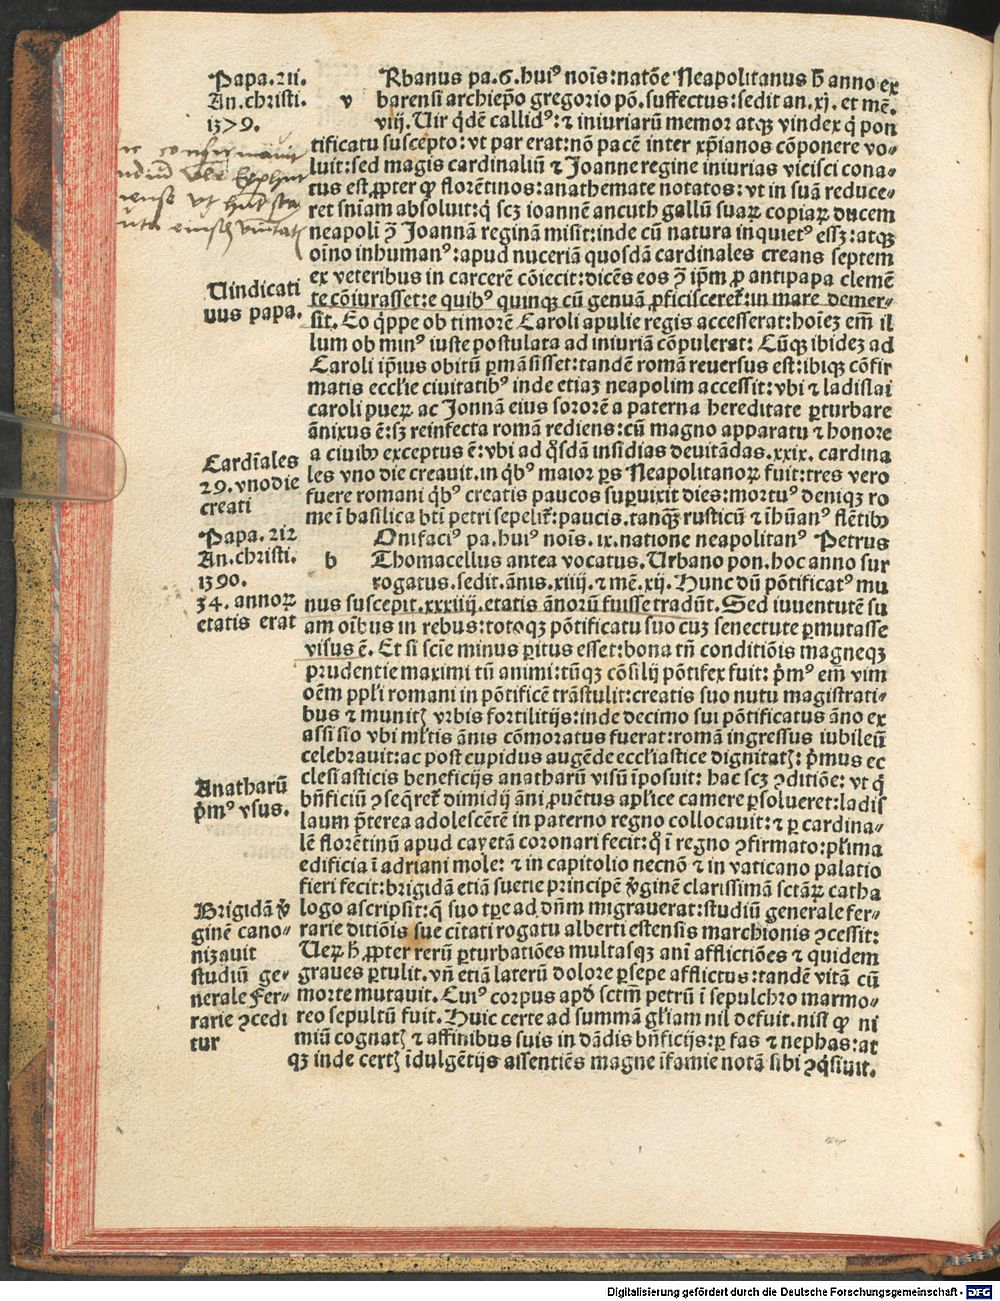 Papa. 211.
An. christi.
1379.
Vindicati
uus papa.
Cardīales
29. vno die
creati
Papa. 212
An. christi.
1390.
34. annoꝝ
etatis erat
Anatharū
p̄m⁹ vsus.
Brigidā v̄
ginē cano⸗
nizauit
studiū ge⸗
nerale Fer⸗
rarie ꝯcedi
tur
v Rbanus pa. 6. hui⁹ noīs: natōe Neapolitanus h̄ anno ex
barensi archiep̄o gregorio pō. suffectus: sedit an. xj. et mē.
viij. Vir qͥdē callid⁹: ⁊ iniuriarū memor atqꝫ vindex qͥ pon
tificatu suscepto: vt par erat: nō pacē inter xp̄ianos cōponere vo⸗
luit: sed magis cardinaliū ⁊ Joanne regine iniurias vicisci cona⸗
tus est, ꝓpter qͩ florētinos: anathemate notatos: vt in suā reduce⸗
ret sn̄iam absoluit: qͥ scꝫ ioannē ancuth gallū suaꝝ copiaꝝ ducem
neapoli ꝯ̄ Joannā reginā misit: inde cū natura inquiet⁹ essꝫ: atqꝫ
oīno inhuman⁹: apud nuceriā quosdā cardinales creans septem
ex veteribus in carcerē cōiecit: dicēs eos ꝯ̄ ip̄m ꝓ antipapa clemē
te cōiurasset: e quib⁹ quinqꝫ cū genuā ꝓficisceret̄: in mare demer⸗
sit. Eo qͥppe ob timorē Caroli apulie regis accesserat: hoīeꝫ em̄ il
lum ob min⁹ iuste postulata ad iniuriā cōpulerat: Cūqꝫ ibideꝫ ad
Caroli ip̄ius obitū ꝑmāsisset: tandē romā reuersus est: ibiqꝫ cōfir
matis eccl̄ie ciuitatib⁹ inde etiaꝫ neapolim accessit: vbi ⁊ ladislai
caroli pueꝝ ac Jonnā eius sororē a paterna hereditate ꝑturbare
ānixus ē: sꝫ reinfecta romā rediens: cū magno apparatu ⁊ honore
a ciuibꝰ exceptus ē: vbi ad qͦsdā insidias deuitādas. xxix. cardina
les vno die creauit. in qͥb⁹ maior ꝑs Neapolitanoꝝ fuit: tres vero
fuere romani qͥb⁹ creatis paucos suꝑuixit dies: mortu⁹ deniqꝫ ro
me ī basilica bt̄i petri sepelit̄: paucis. tanqꝫ̄ rusticū ⁊ īhūan⁹ flētibꝰ
b Onifaci⁹ pa. hui⁹ noīs. ix. natione neapolitan⁹ Petrus
Thomacellus antea vocatus. Urbano pon. hoc anno sur
rogatus. sedit. ānis. xiiij. ⁊ mē. xij. Hunc dū pōtificat⁹ mu
nus suscepit. xxxiiij. etatis ānorū fuisse tradūt. Sed iuuentutē su
am oībus in rebus: totoqꝫ pōtificatu suo cuꝫ senectute ꝑmutasse
visus ē. Et si scīe minus ꝑitus esset: bona tn̄ conditiōis magneqꝫ
prudentie maximi tū animi: tūqꝫ cōsilij pōtifex fuit: p̄m⁹ em̄ vim
oēm pp̄li romani in pōtificē trāstulit: creatis suo nutu magistrati⸗
bus ⁊ munitꝭ vrbis fortilitijs: inde decimo sui pōtificatus āno ex
assisio vbi ml̄tis ānis cōmoratus fuerat: romā ingressus iubileū
celebrauit: ac post cupidus augēde eccl̄iastice dignitatꝭ: p̄mus ec
clesiasticis beneficijs anatharū visū īposuit: hac scꝫ ꝯditiōe: vt qͥ
bn̄ficiū ꝯseqͥret̄ dimidij āni ꝓuētus apl̄ice camere ꝑsolueret: ladis
laum p̄terea adolescētē in paterno regno collocauit: ⁊ ꝑ cardina⸗
lē florētinū apud cayetā coronari fecit: qͦ ī regno ꝯfirmato: pl̄ima
edificia ī adriani mole: ⁊ in capitolio necnō ⁊ in vaticano palatio
fieri fecit: brigidā etiā suetie principē v̄ginē clarissimā sctāꝝ catha
logo ascripsit: qͣ suo tꝑe ad dn̄m migrauerat: studiū generale fer⸗
rarie ditiōis sue cītati rogatu alberti estensis marchionis ꝯcessit:
Veꝝ h̄ ꝓpter rerū ꝑturbatiōes multasqꝫ anī afflictiōes ⁊ quidem
graues ꝑtulit. vn̄ etiā laterū dolore ꝑsepe afflictus: tandē vitā cū
morte mutauit. Cui⁹ corpus apd̄ sctm̄ petrū ī sepulchro marmo⸗
reo sepultū fuit. Huic certe ad summā gl̄iam nil defuit. nisi qͩ ni
miū cognatꝭ ⁊ affinibus suis in dādis bn̄ficijs: ꝑ fas ⁊ nephas: at
qꝫ inde certꝭ īdulgētijs assentiēs magne īfamie notā sibi ꝯqͥsiuit.
Digitalisierung gefördert durch die Deutsche Forschungsgemeinschaft - DFG